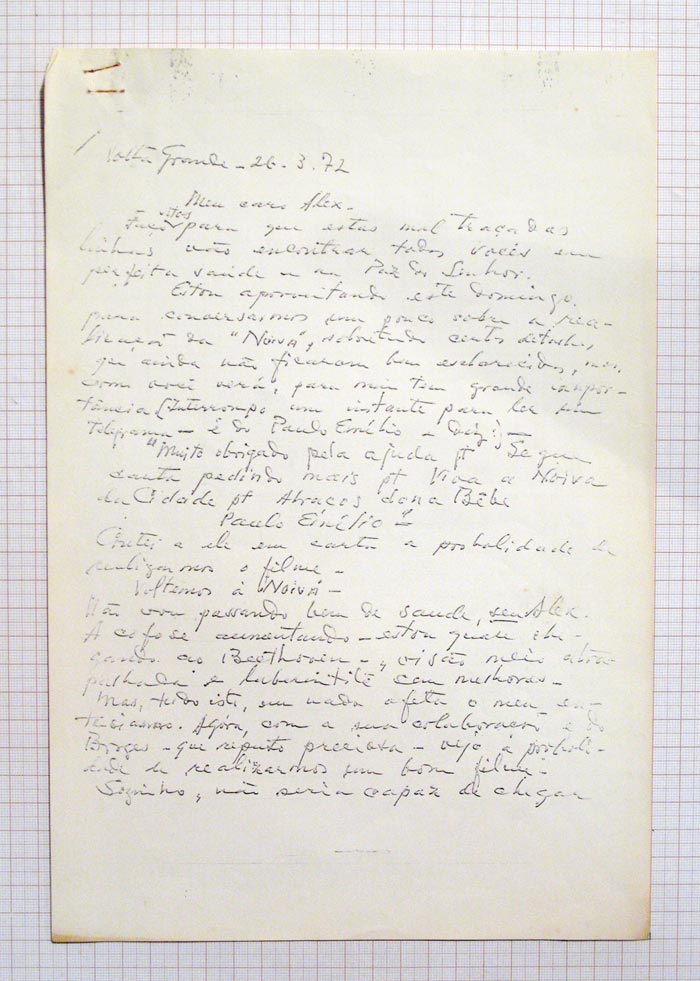 Volta Grande - 26.3.72
Meu caro Alex -
Faço votos para que estas mal traçadas
linhas vão encontrar todos vocês em
perfeita saúde e na Paz do Senhor.
Estou aproveitando este Domingo,
para conversarmos um pouco sobre a rea-
lização da "Noiva", sobretudo certos detalhes
que ainda não ficaram bem esclarecidos, mas,
como você verá, para mim tem grande impor-
tância (Interrompo um instante para ler um
telegrama - é do Paulo Emílio - Diz:) -
"Muito obrigado pela ajuda pt Segue
carta pedindo mais pt Viva a Noiva
da Cidade pt Abraços dona Bêbe
Paulo Emílio"
Contei a ele em carta a possibilidade de
realizarmos o filme -
Voltemos à "Noiva" -
Não vou passando bem de saude, seu Alex.
A cofose aumentando - estou quase che-
gando ao Beethoven -, visão meio atra-
palhada e labirintite com melhoras -
Mas, tudo isto, em nada afeta o meu en-
tusiasmo. Agóra, com a sua colaboração e do
Borges - que reputo preciosa - vejo a possibili-
dade de realizarmos um bom filme -
Sozinho, não seria capaz de chegar